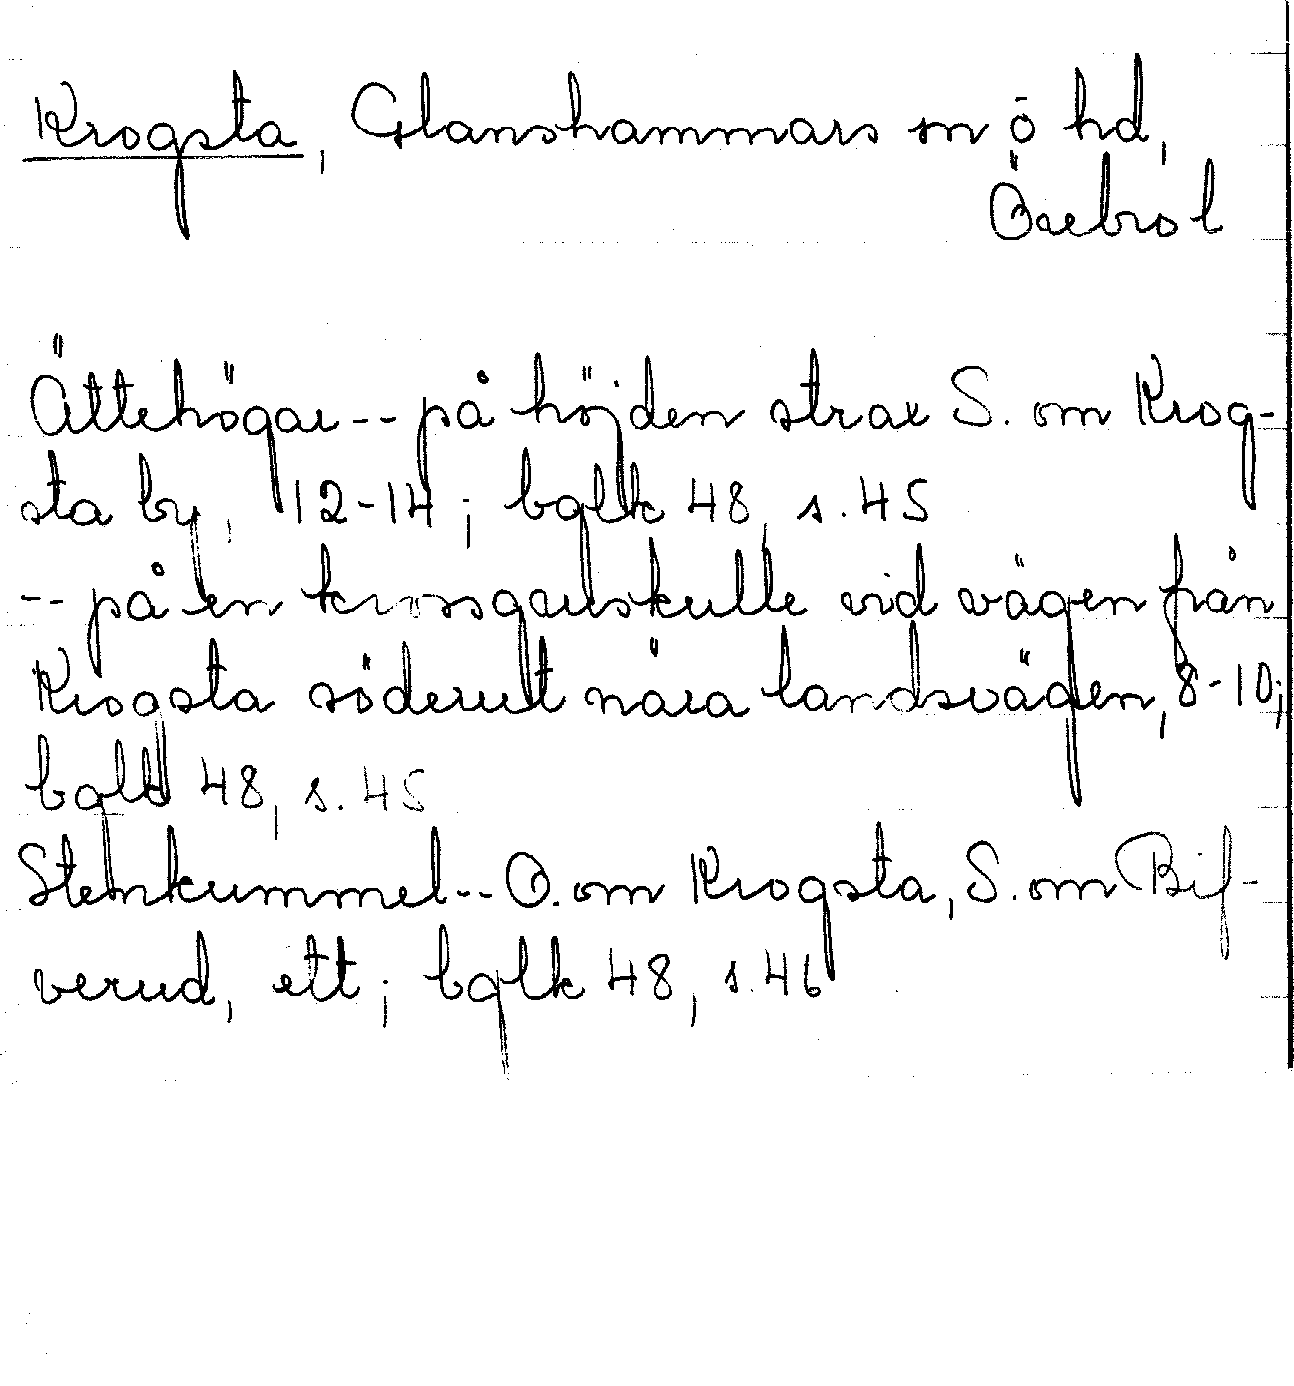 Krogsta, Glanshammars sn ō hd,
Örebro l
Ättehögar -- på höjden strax S. om Krog-
sta by, 12-14; bglk 48, s. 45
-- på en krossgruskulle vid vägen från
Krogsta söderut nära landsvägen, 8-10;
bglk 48, s. 45
Stenkummel -- O. om Krogsta, S. om Bif-
verud, ett; bglk 48, s. 46